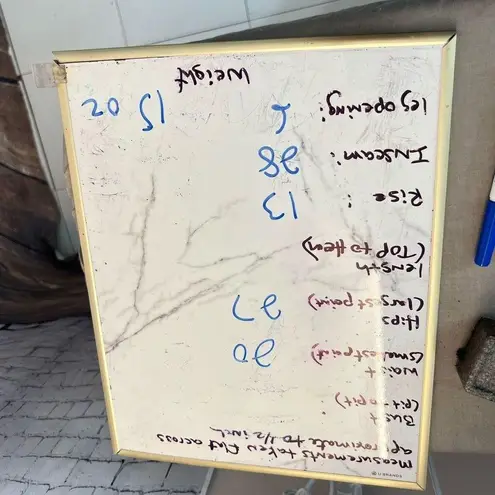 measurements taken flat across
approximate to 1/2 inch
Bust
(pit to pit)
Waist 20
(smallest point)
Hips 27
(largest point)
Length
(Top to Hem)
Rise : 13
Inseam : 28
leg opening :
Weight 15 oz